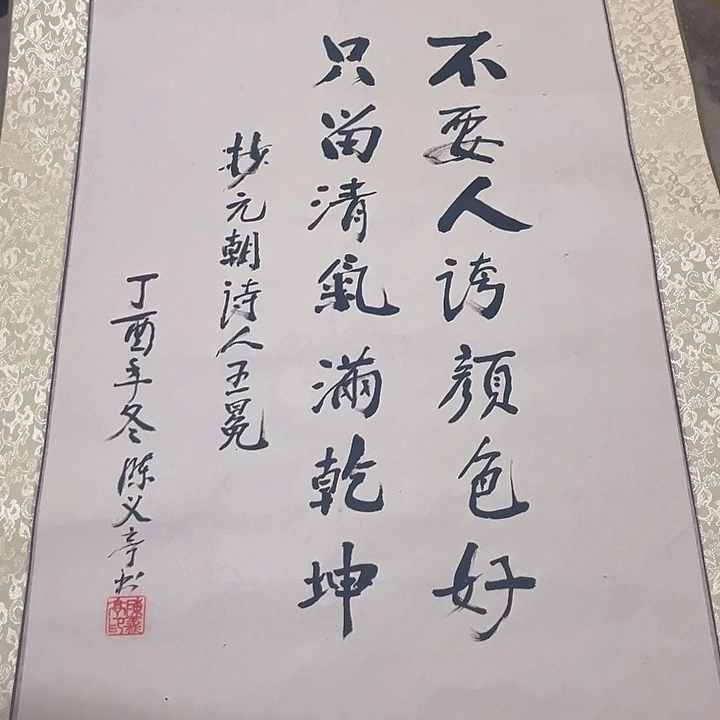 不要人誇顏色好
只留清氣滿乾坤
抄元朝詩人王冕
丁酉年冬陳义亭书